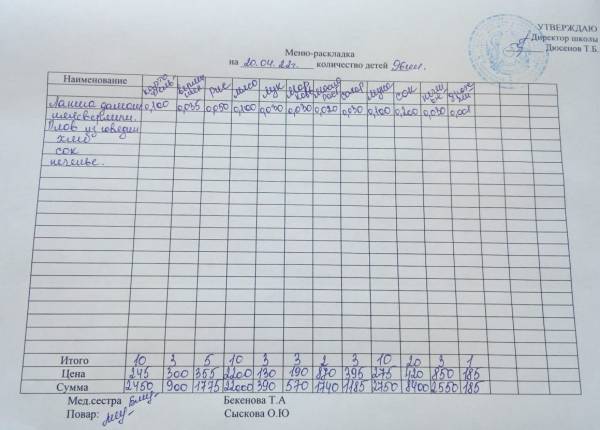 УТВЕРЖДАЮ
Директор школы
Дюсенов Т.Б.
Меню-раскладка
на 20.04.22г. количество детей 96чел.
Наименование карто фель верми шель рис мясо лук мор ковь сахар мука сок печен ье
Лапша домаш 0,100 0,035 0,050 0,100 0,030 0,030 0,020 0,030 0,100 0,200 0,030 0,001
Плов из говядин
хлеб
сок
печенье.
Итого 10 3 5 10 3 3 2 3 10 20 3 1
Цена 245 300 355 2200 130 190 870 395 275 420 850 185
Сумма 2450 900 1775 22000 390 570 1740 1185 2750 8400 2550 185
Мед.сестра Бекенова Т.А
Повар: Сыскова О.Ю